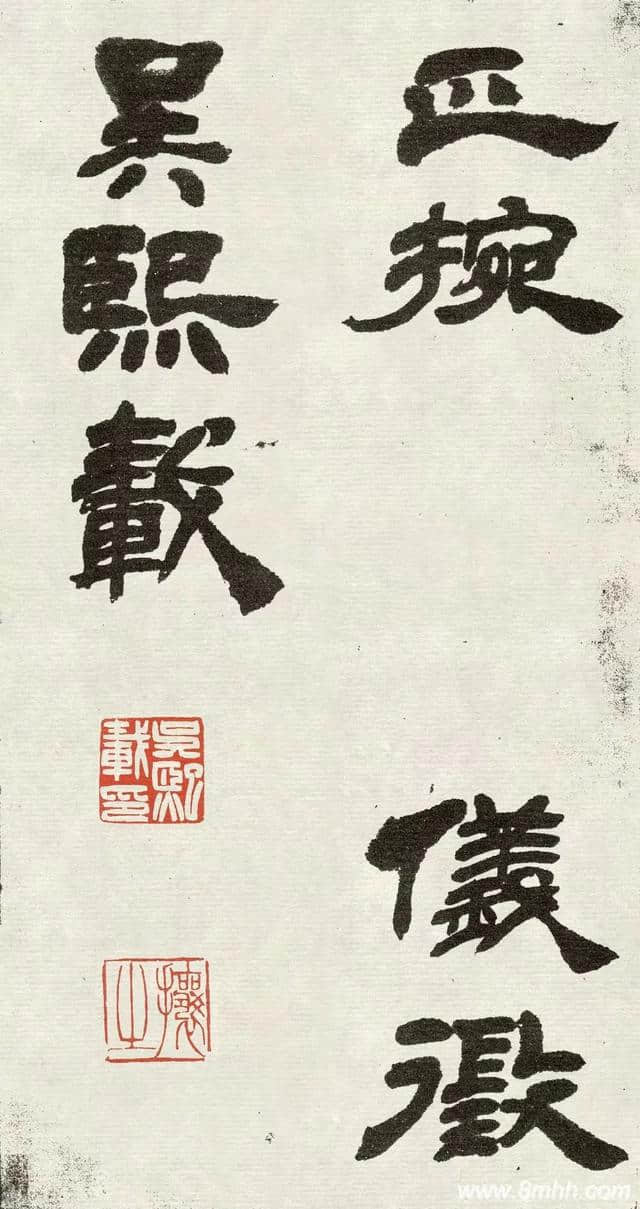 正捥
儀徵
吳熙載
吳熙載印
攘之
www.8mhh.com